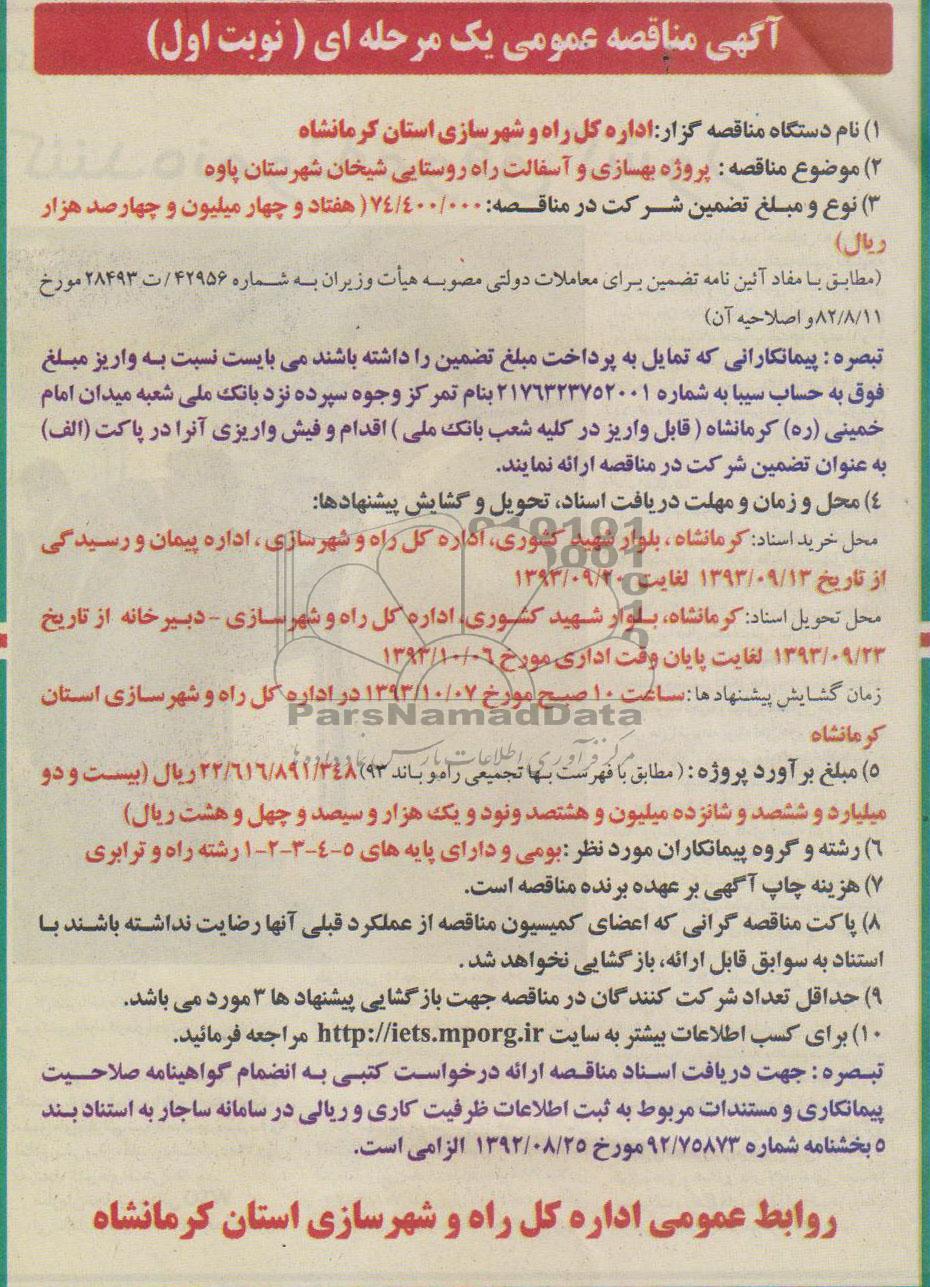 آگهی مناقصه عمومی یک مرحله ای ( نوبت اول)
۱) نام دستگاه مناقصه گزار:اداره کل راه و شهرسازی استان کرمانشاه
۲) موضوع مناقصه : پروژه بهسازی و آسفالت راه روستایی شیخان شهرستان پاوه
۳) نوع و مبلغ تضمین شرکت در مناقصه: ۷۴/۴۰۰/۰۰۰ ( هفتاد و چهار میلیون و چهارصد هزار
ریال)
(مطابق با مفاد آئین نامه تضمین برای معاملات دولتی مصوبه هیأت وزیران به شماره ۴۲۹۵۶ / ت ۲۸۴۹۳ مورخ
۸۲/۸/۱۱ و اصلاحیه آن)
تبصره : پیمانکارانی که تمایل به پرداخت مبلغ تضمین را داشته باشند می بایست نسبت به واریز مبلغ
فوق به حساب سیبا به شماره ۲۱۷۶۳۲۳۷۵۲۰۰۱ بنام تمرکز وجوه سپرده نزد بانک ملی شعبه میدان امام
خمینی (ره) کرمانشاه ( قابل واریز در کلیه شعب بانک ملی ) اقدام و فیش واریزی آنرا در پاکت (الف)
به عنوان تضمین شرکت در مناقصه ارائه نمایند.
۴) محل و زمان و مهلت دریافت اسناد، تحویل و گشایش پیشنهادها:
محل خرید اسناد: کرمانشاه ، بلوار شهید کشوری، اداره کل راه و شهرسازی ، اداره پیمان و رسیدگی
از تاریخ ۱۳۹۳/۰۹/۱۳ لغایت ۱۳۹۳/۰۹/۲۰
محل تحویل اسناد: کرمانشاه، بلوار شهید کشوری، اداره کل راه و شهرسازی - دبیرخانه از تاریخ
۱۳۹۳/۰۹/۲۳ لغایت پایان وقت اداری مورخ ۱۳۹۳/۱۰/۰۶
زمان گشایش پیشنهادها: ساعت ۱۰ صبح مورخ ۱۳۹۳/۱۰/۰۷ در اداره کل راه و شهرسازی استان
ParsNamadData
کرمانشاه
مرکز فرآوری اطلاعات پارس نماد داده ها
۵) مبلغ برآورد پروژه : ( مطابق با فهرست بها تجمیعی راه و باند ۹۳) ۲۲/۶۱۶/۸۹۱/۳۴۸ ریال (بیست و دو
میلیارد و ششصد و شانزده میلیون و هشتصد ونود و یک هزار و سیصد و چهل و هشت ریال)
۶) رشته و گروه پیمانکاران مورد نظر :بومی و دارای پایه های ۵-۴-۳-۲-۱ رشته راه و ترابری
۷) هزینه چاپ آگهی بر عهده برنده مناقصه است.
۸) پاکت مناقصه گرانی که اعضای کمیسیون مناقصه از عملکرد قبلی آنها رضایت نداشته باشند با
استناد به سوابق قابل ارائه، بازگشایی نخواهد شد .
۹) حداقل تعداد شرکت کنندگان در مناقصه جهت بازگشایی پیشنهاد ها ۳ مورد می باشد.
۱۰) برای کسب اطلاعات بیشتر به سایت http://iets.mporg.ir مراجعه فرمائید.
تبصره : جهت دریافت اسناد مناقصه ارائه درخواست کتبی به انضمام گواهینامه صلاحیت
پیمانکاری و مستندات مربوط به ثبت اطلاعات ظرفیت کاری و ریالی در سامانه ساجار به استناد بند
۵ بخشنامه شماره ۹۲/۷۵۸۷۳ مورخ ۱۳۹۲/۰۸/۲۵ الزامی است.
روابط عمومی اداره کل راه و شهرسازی استان کرمانشاه